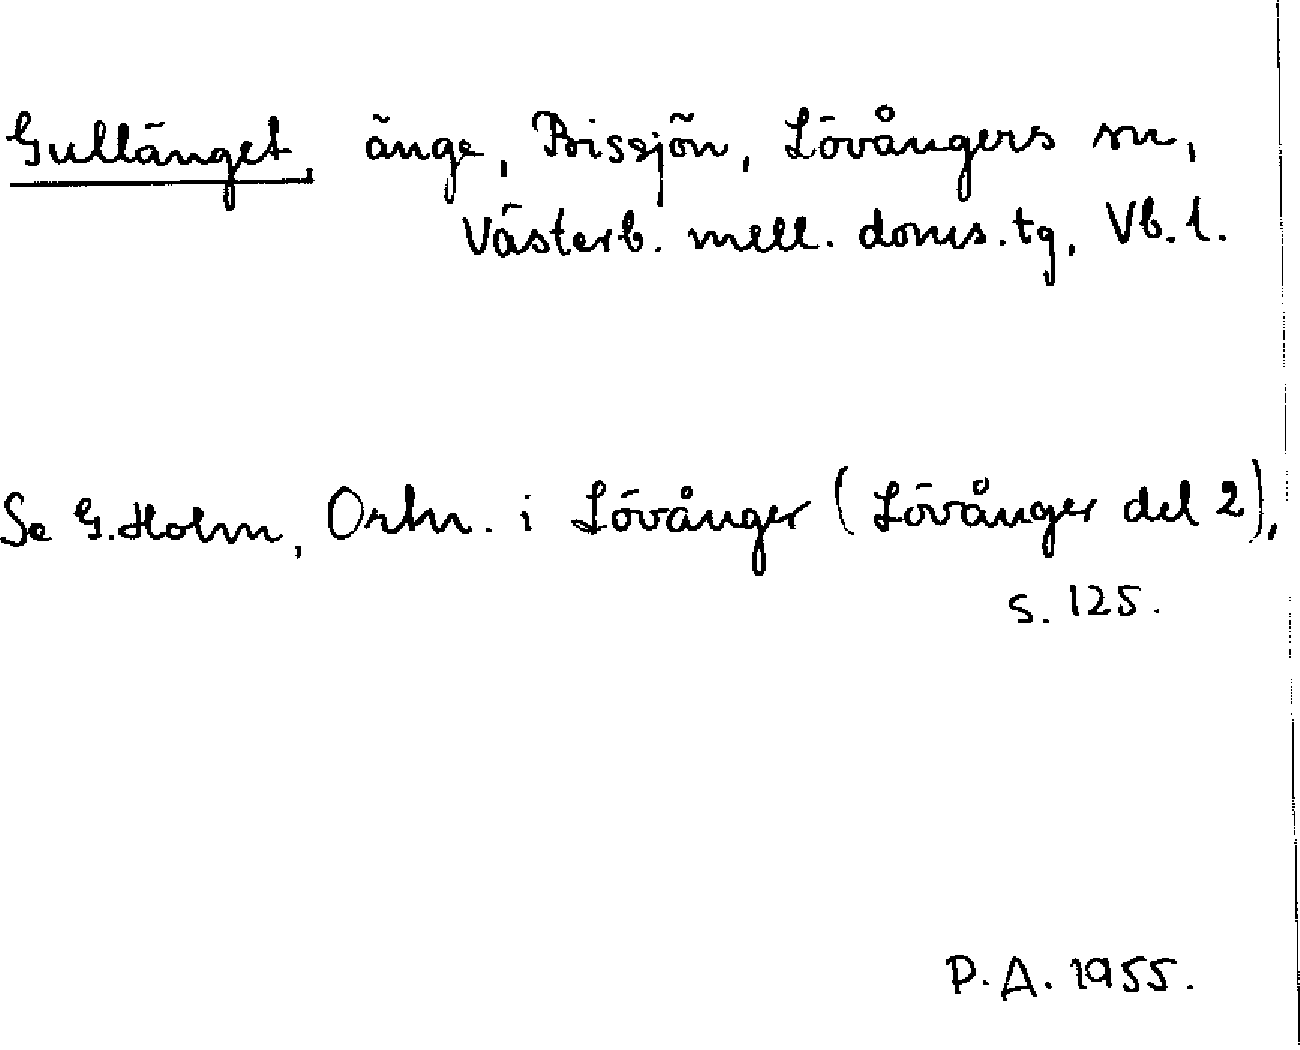 Gullänget, änge, Bissjön, Lövångers sn,
Västerb. mell. doms.tg, Vb. l.
Se G. Holm, Ortn. i Lövånger (Lövånger del 2),
s. 125.
P.A. 1955.